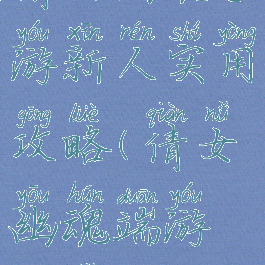 yóu xīn rén shí yòng
游新人实用
gōng lüè qiàn nǚ
攻略(倩女
yōu hún duān yóu
幽魂端游